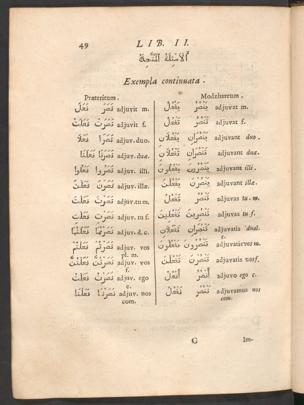 49 LIB. II.
الامثلة المتتحة
Exempla continuata.
Præteritum. Modzhareum.
نَصَرَ فَعَلَ adjuvit m. يَنْصُرُ يَفْعُلُ adjuvat m.
نَصَرَتْ فَعَلَتْ adjuvit f. تَنْصُرُ تَفْعُلُ adjuvat f.
نَصَرَا فَعَلَا adjuv. duo. يَنْصُرَانِ يَفْعُلَانِ adjuvant duo.
نَصَرَتَا فَعَلَتَا adjuv. duæ. تَنْصُرَانِ تَفْعُلَانِ adjuvant duæ.
نَصَرُوا فَعَلُوا adjuv. illi. يَنْصُرُونَ يَفْعُلُونَ adjuvant illi.
نَصَرْنَ فَعَلْنَ adjuv. illæ. يَنْصُرْنَ يَفْعُلْنَ adjuvant illæ.
نَصَرْتَ فَعَلْتَ adjuv. tu m. تَنْصُرُ تَفْعُلُ adjuvas tu. m.
نَصَرْتِ فَعَلْتِ adjuv. tu f. تَنْصُرِينَ تَفْعُلِينَ adjuvas tu f.
نَصَرْتُمَا فَعَلْتُمَا adjuv. d. c. تَنْصُرَانِ تَفْعُلَانِ adjuvatis dual.
c.
نَصَرْتُمْ فَعَلْتُمْ adjuv. vos تَنْصُرُونَ تَفْعُلُونَ adjuvatis vos m.
pl. m.
نَصَرْتُنَّ فَعَلْتُنَّ adjuv. vos تَنْصُرْنَ تَفْعُلْنَ adjuvatis vos f.
f.
نَصَرْتُ فَعَلْتُ adjuv. ego أَنْصُرُ أَفْعُلُ adjuvo ego c.
c.
نَصَرْنَا فَعَلْنَا adjuv. nos نَنْصُرُ نَفْعُلُ adjuvamus nos
com. com.
G Im-